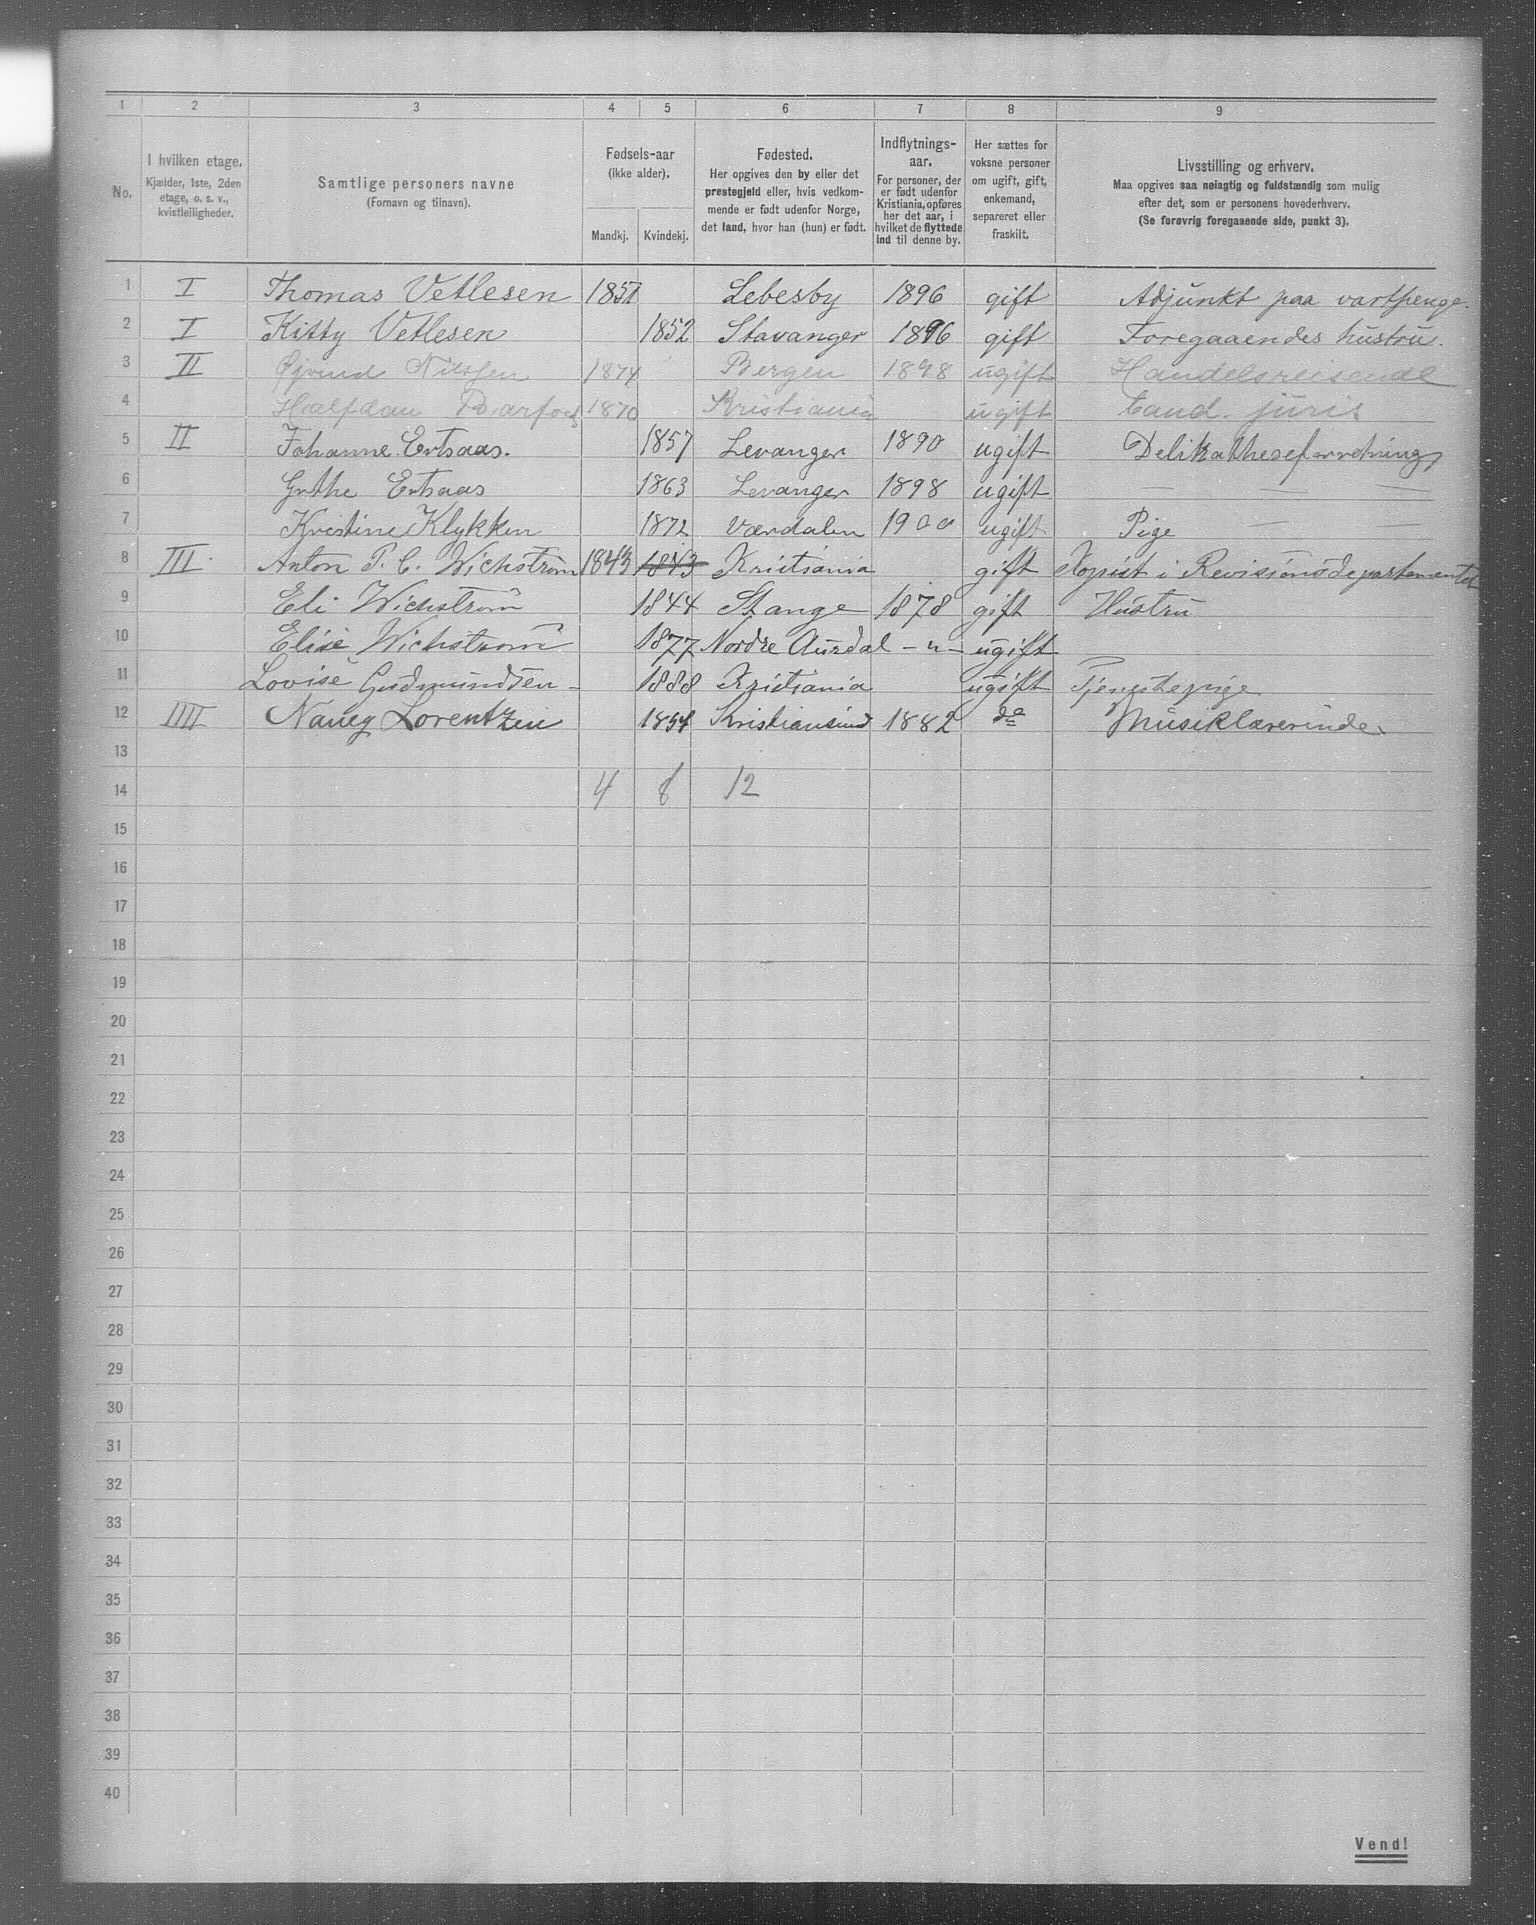 1 2 3 4 5 6 7 8 9
No.
I hvilken etage.
Kjælder, 1ste, 2den
etage, o. s. v.,
kvistleiligheder.
Samtlige personers navne
(Fornavn og tilnavn).
Fødsels-aar
(ikke alder).
Mandkj. Kvindekj.
Fødested.
Her opgives den by eller det
prestegjeld eller, hvis vedkom-
mende er født udenfor Norge,
det land, hvor han (hun) er født.
Indflytnings-
aar.
For personer, der
er født udenfor
Kristiania, opføres
her det aar, i
hvilket de flyttede
ind til denne by.
Her sættes for
voksne personer
om ugift, gift,
enkemand,
separeret eller
fraskilt.
Livsstilling og erhverv.
Maa opgives saa nøiagtig og fuldstændig som mulig
efter det, som er personens hovederhverv.
(Se forøvrig foregaaende side, punkt 3).
1 I Thomas Vetlesen 1851 Lebesby 1896 gift Adjunkt paa vartpenge.
2 I Kitty Vetlesen 1852 Stavanger 1896 gift Foregaaendes hustru.
3 II Øjvind Nilssen 1874 Bergen 1898 ugift Handelsreisende
4 Halfdan 1870 Kristiania ugift Cand. juris
5 II Johanne Ertsaas. 1857 Levanger 1890 ugift Delikathesseforretning
6 Grthe Ertsaas 1863 Levanger 1898 ugift — — —
7 Kristine Klykken 1872 Værdalen 1900 ugift Pige — —
8 III. Anton P. C. Wichstrøm 1843 1843 Kristiania gift Kopist i Revisionsdepartementet
9 Eli Wichstrøm 1844 Stange 1878 gift Hustru
10 Elise Wichstrøm 1877 Nordre Aurdal -"- ugift
11 Lovise Gudmundsen - 1888 Kristiania ugift Tjenestepige
12 IIII Nancy Lorentzen 1854 Kristiansund 1882 do Musiklærerinde.
13
14 4 8 12
15
16
17
18
19
20
21
22
23
24
25
26
27
28
29
30
31
32
33
34
35
36
37
38
39
40
Vend!